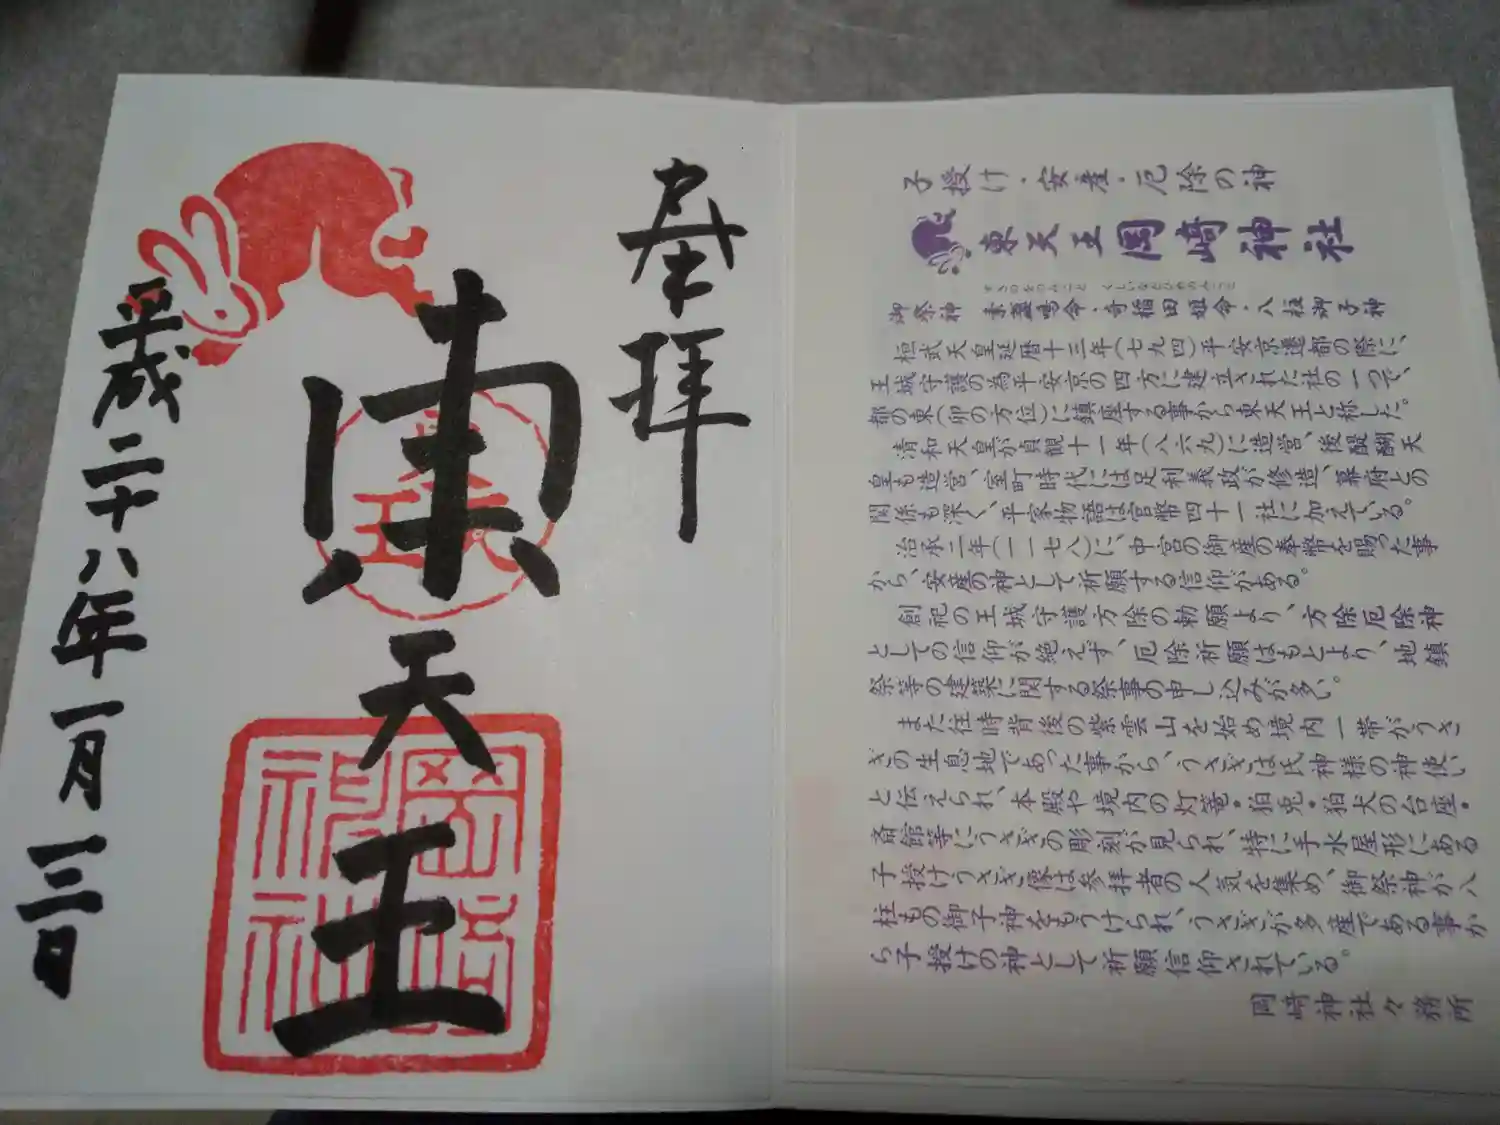 奉拝
東天王
平成二十八年一月三日
東天王
岡﨑神社
子授け・安産・厄除の神
東天王 岡﨑神社
すさのをのみこと くしいなだひめのみこと
御祭神 素盞鳴命・奇稲田姫命・八柱御子神
桓武天皇延暦十三年(七九四)平安京遷都の際に、
王城守護の為平安京の四方に建立された社の一つで、
都の東(卯の方位)に鎮座する事から東天王と称した。
清和天皇が貞観十一年(八六九)に造営、後醍醐天
皇も造営、室町時代には足利義政が修造、幕府との
関係も深く、平家物語は官幣四十一社に加えている。
治承二年(一一七八)に、中宮の御産の奉幣を賜った事
から、安産の神として祈願する信仰がある。
創祀の王城守護方除の勅願より、方除厄除神
としての信仰が絶えず、厄除祈願はもとより、地鎮
祭等の建築に関する祭事の申し込みが多い。
また往時背後の紫雲山を始め境内一帯がうさ
ぎの生息地であった事から、うさぎは氏神様の神使い
と伝えられ、本殿や境内の灯篭・狛兎・狛犬の台座・
斎館等にうさぎの彫刻が見られ、特に手水屋形にある
子授けうさぎ像は参拝者の人気を集め、御祭神が八
柱もの御子神をもうけられ、うさぎが多産である事か
ら子授けの神として祈願信仰されている。
岡﨑神社々務所